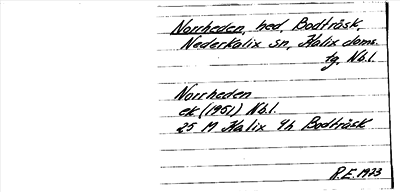 Norrheden, hed, Bodträsk,
Nederkalix sn, Kalix doms.
tg, Nb.l.
Norrheden
ek (1951) Nb.l.
25 M Kalix 4h Bodträsk
R.E. 1973